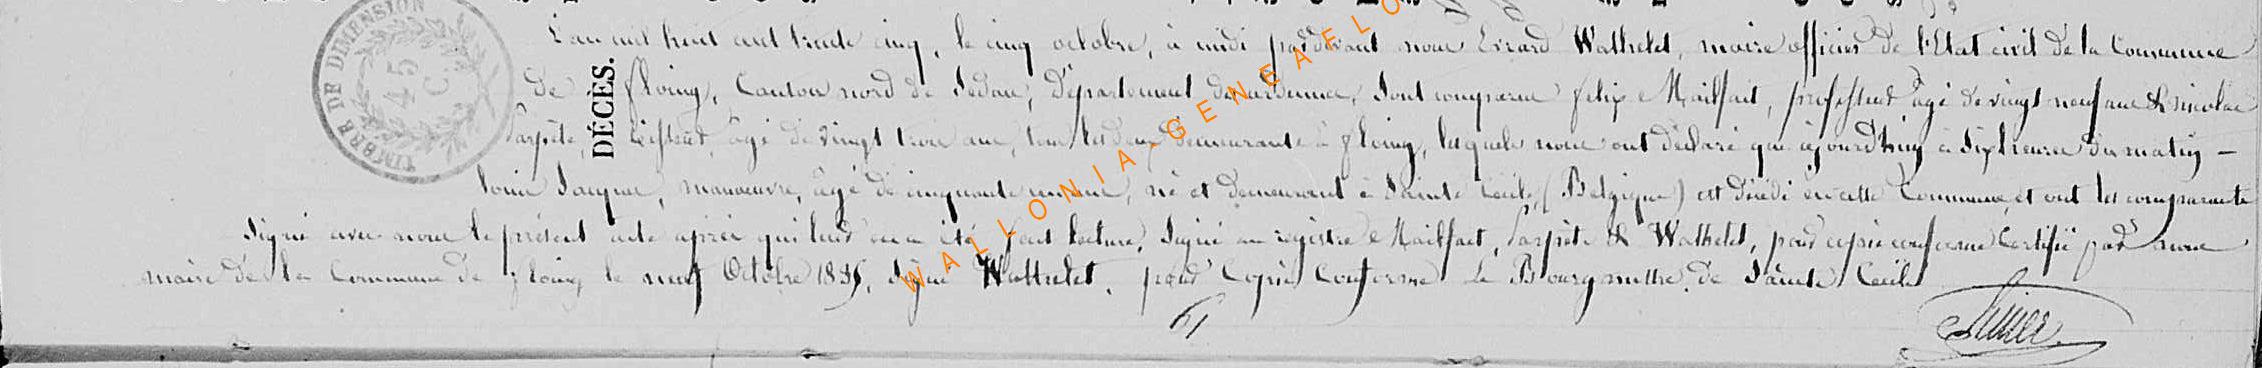 L'an mil huit cent trente cinq, le cinq octobre, à midi pardevant nous Evrard Wathelet, maire officier de l'Etat civil de la Commune
de floing, Canton nord de Sedan, Département des ardennes, sont comparus felix Mailfait, professeur âgé de vingt neuf ans & nicolas
tisseur, âgé de vingt trois ans, tous les deux demeurants à floing, lesquels nous ont déclaré que ajourd'huy à six heures du matin –
Louis Jacques, manoeuvre, âgé de cinquante un ans, né et demeurant à Sainte Cécile, (Belgique) est décédé en cette Commune, et ont les comparants
Signé avec nous le présent acte après qu'il leur en a été fait lecture, Signé au registre Mailfait, & Wathelet, pour copie conforme Certifié par nous
maire de la Commune de floing le neuf Octobre 1835, signé Wathelet, pour Copie Conforme Le Bourgmettre de Sainte Cécile
TIMBRE DE DIMENSION
45
C.
DÉCÈS.
WALLONIA-GENEAFLO